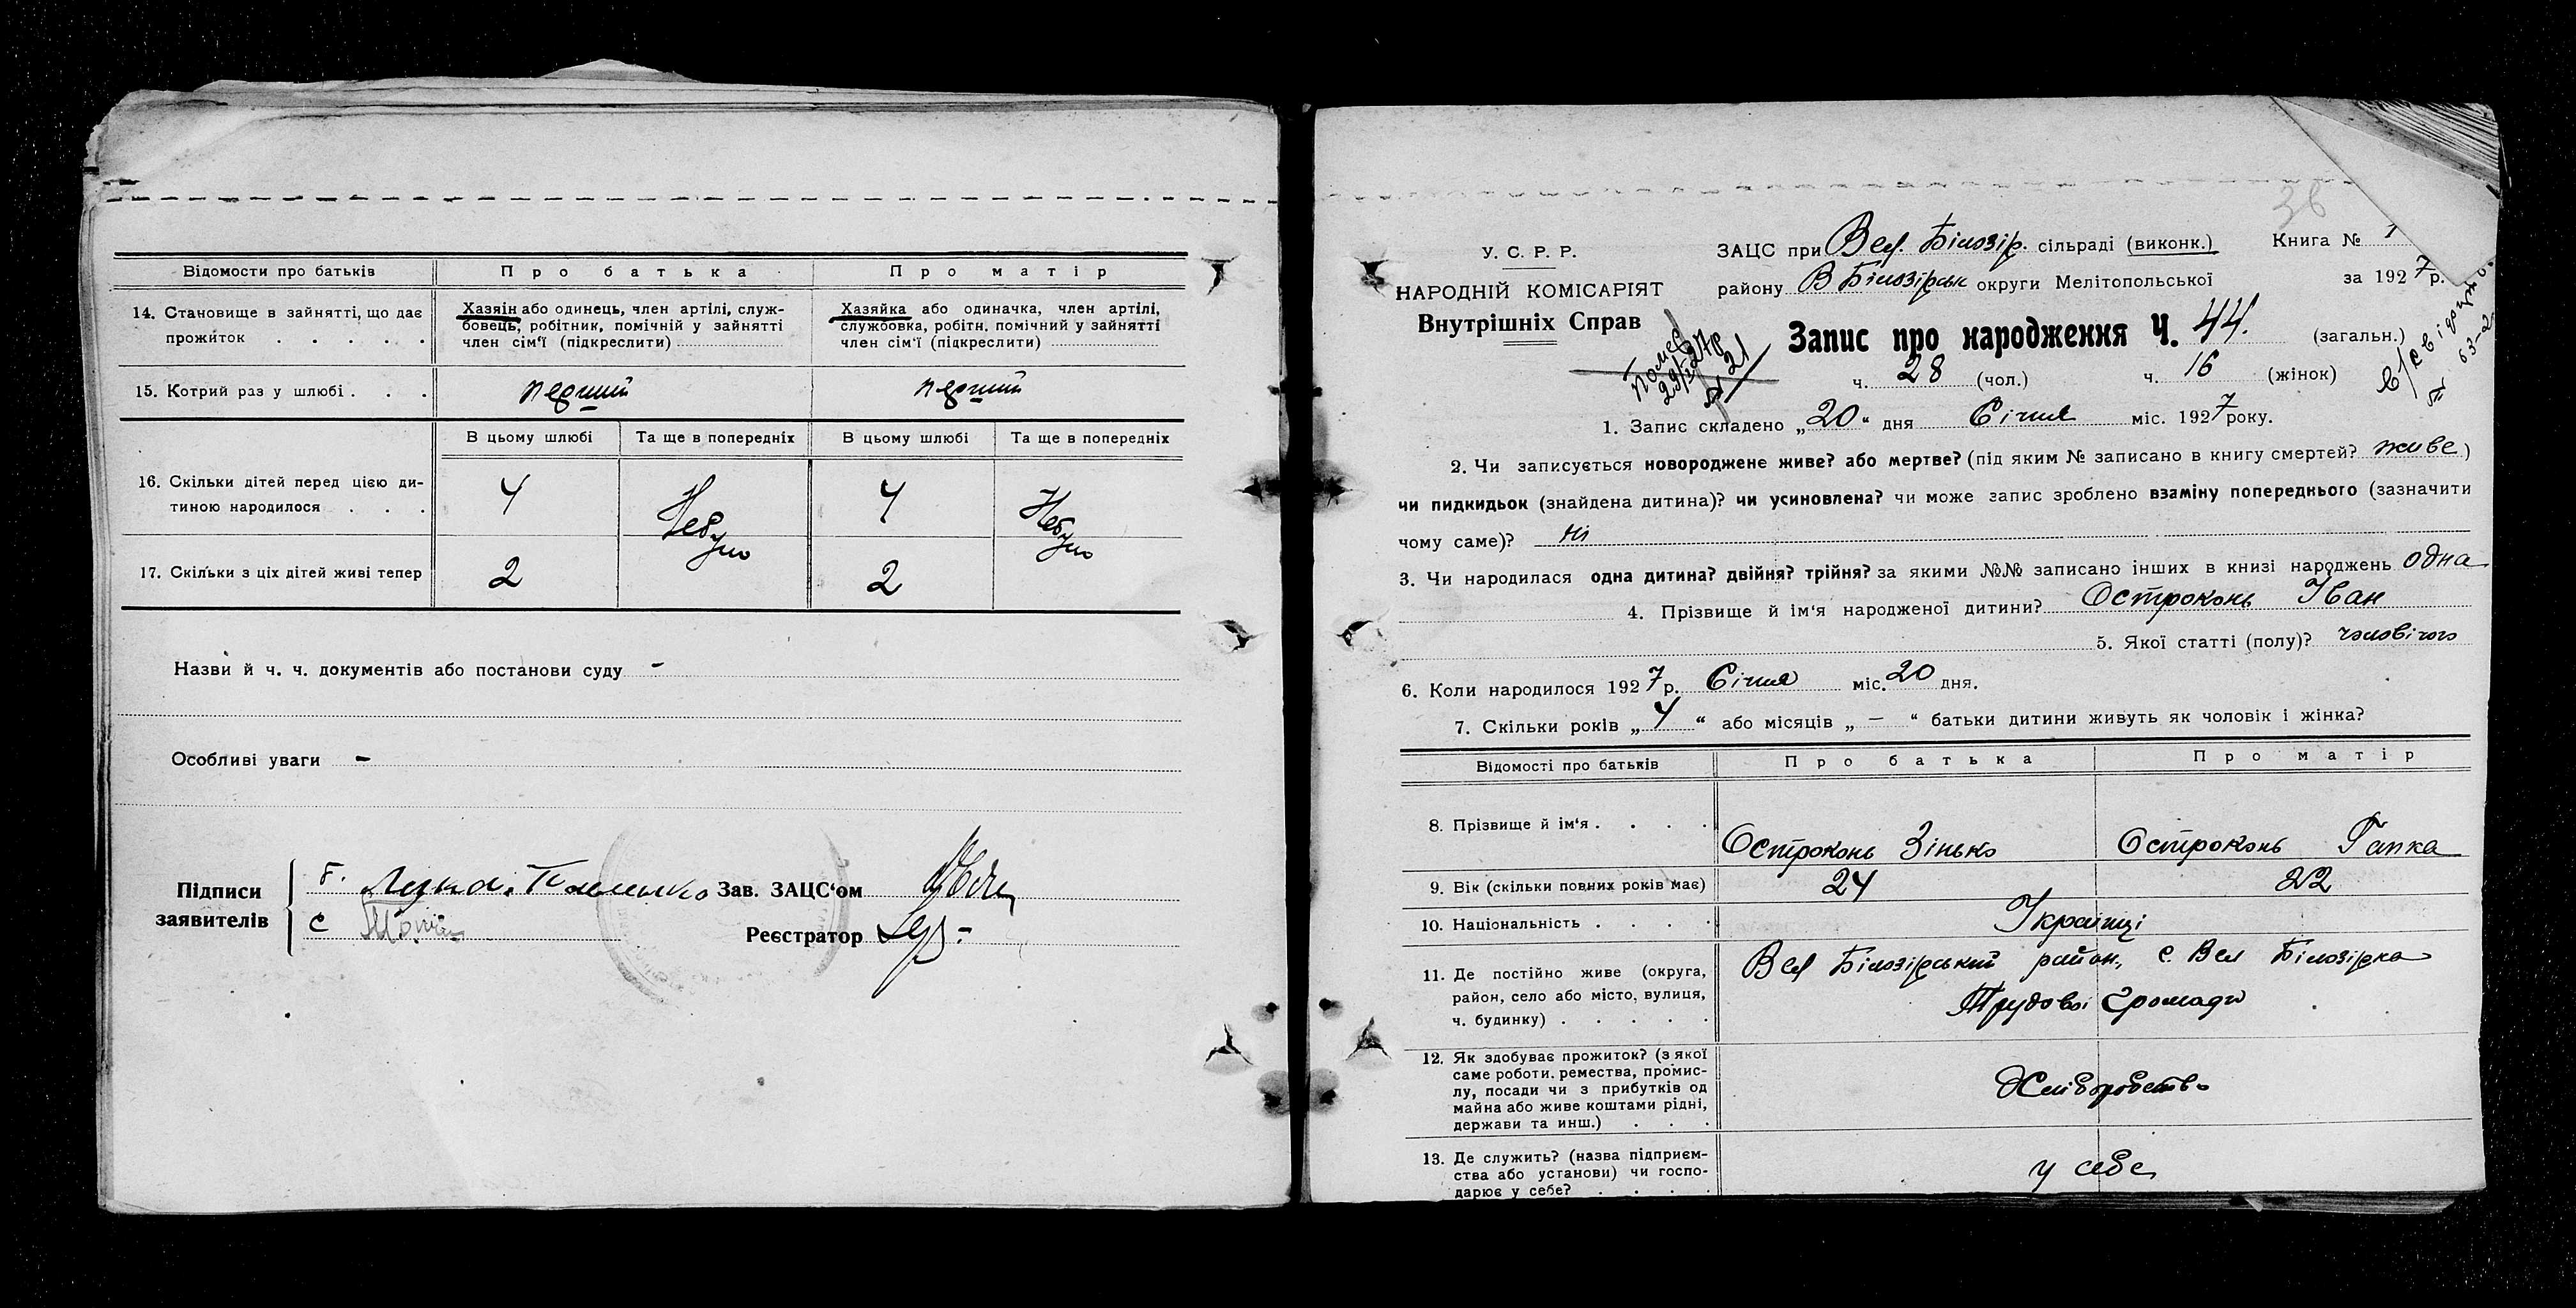 Відомости про батьків
Про батька
Про матір
14. Становище в зайнятті, що дає прожиток . . . . .
Хазяін або одинець, член артілі, служ-
бовець, робітник, помічній у зайнятті
член сім'ї (підкреслити)
Хазяйка або одиначка, член артілі,
службовка, робітн. помічний у зайнятті
член сім'ї (підкреслити)
15. Котрий раз у шлюбі . . .
перший
перший
В цьому шлюбі
Та ще в попередніх
В цьому шлюбі
Та ще в попередніх
16. Скільки дітей перед цією ди-
тиною народилося . . .
4
Не було
4
Не було
17. Скільки з ціх дітей живі тепер
2
2
Назви й ч. ч. документів або постанови суду -
Особливі уваги -
Підписи
заявителів
б.
Зав. ЗАЦС'ом
с
Реєстратор
36
У. С. Р. Р.
НАРОДНІЙ КОМІСАРІЯТ
Внутрішніх Справ
ЗАЦС при Вел. Білозір. сільраді (виконк.)
Книга № 1
району В Білозірськ округи Мелітопольської
за 1927 р.
Запис про народження Ч. 44. (загальн.)
ч. 28 (чол.) ч. 16 (жінок)
1. Запис складено „20“ дня Січня міс. 1927 року.
2. Чи записується новороджене живе? або мертве? (під яким № записано в книгу смертей? живе)
чи пидкидьок (знайдена дитина)? чи усиновлена? чи може запис зроблено взаміну попереднього (зазначити
чому саме)? ні
3. Чи народилася одна дитина? двійня? трійня? за якими №№ записано інших в книзі народжень одна
4. Прізвище й ім'я народженої дитини? Остроконь Іван
5. Якої статті (полу)? чоловічого
6. Коли народилось 1927 р. Січня міс. 20 дня.
7. Скільки років „4“ або місяців „—“ батьки дитини живуть як чоловік і жінка?
Відомості про батьків
Про батька
Про матір
8. Прізвище й ім'я . . . .
Остроконь Зінько
Остроконь Гапка
9. Вік (скільки повних років має)
24
22
10. Національність . . . .
Українці
11. Де постійно живе (округа,
район, село або місто, вулиця,
ч. будинку) . . . . .
Вел Білозірський район, с. Вел Білозірка
Трудової Громади
12. Як здобуває прожиток? (з якої
саме роботи, ремества, промис-
лу, посади чи з прибутків од
майна або живе коштами рідні,
держави та инш.) . . .
Хліборобство
13. Де служить? (назва підприєм-
ства або установи) чи госпо-
дарює у себе? . . . .
у себе